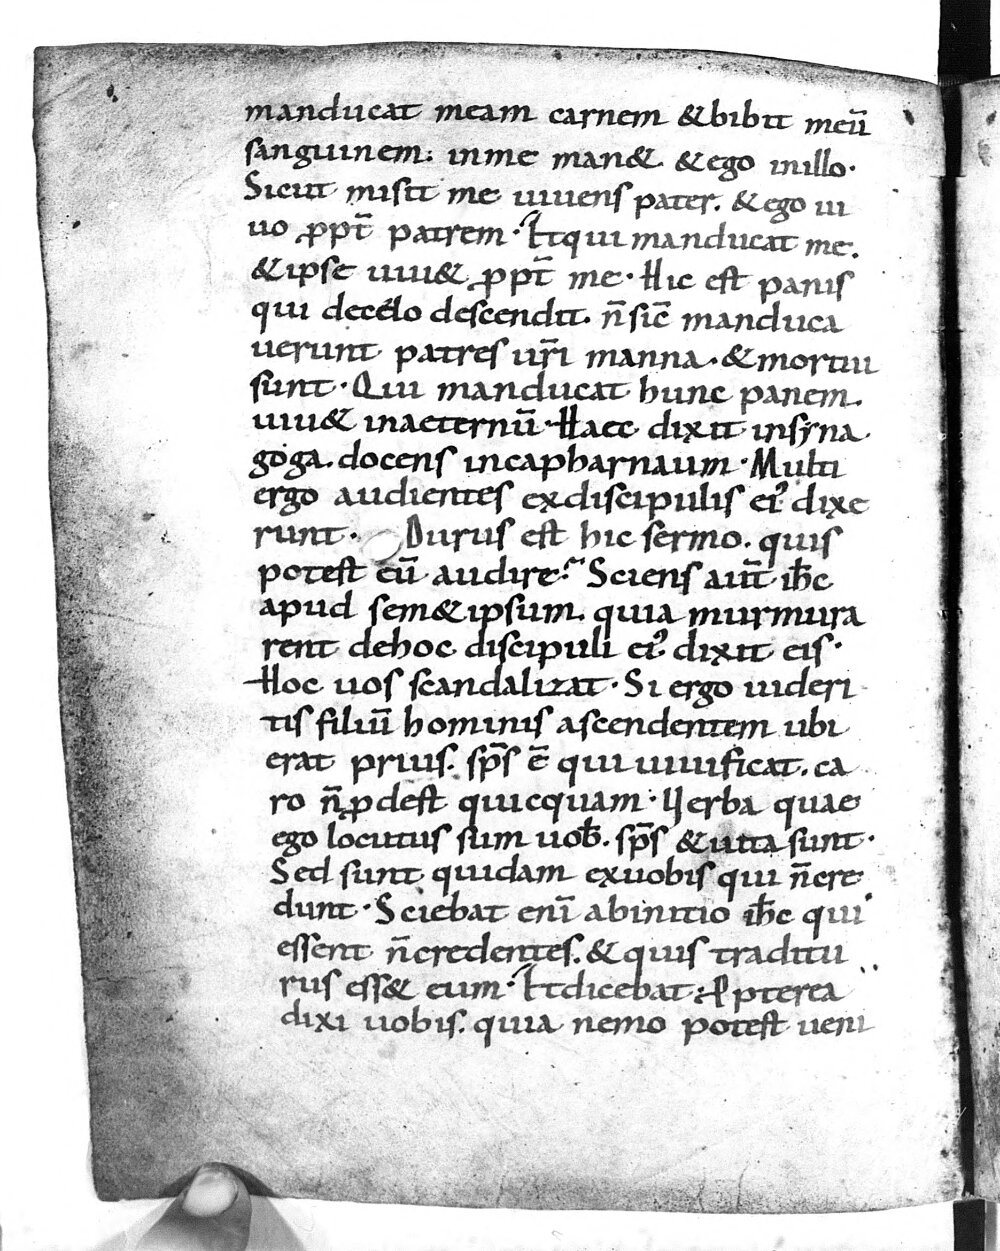 manducat meam carnem & bibit meū
sanguinem: inme man& & ego inillo·
Sicut misit me uiuens pater. & ego ui
uo ꝓpt̄ patrem· Et qui manducat me.
& ipse uiu& ꝓpt̄ me· Hic est panis
qui decęlo descendit. n̄ sic̄ manduca
uerunt patres ur̄i manna· & mortui
sunt· Qui manducat hunc panem.
uiu& inaeternū· Haec dixit insyna
goga. docens incapharnaum· Multi
ergo audientes exdiscipulis ei᾽ dixe
runt· Durus est hic sermo. quis
potest eū audire? Sciens aut̄ ih̄c
apud sem&ipsum. quia murmura
rent dehoc discipuli ei᾽ dixit eis·
Hoc uos scandalizat· Si ergo uideri
tis filiū hominis ascendentem ubi
erat prius. sp̄s ē qui uiuificat. ca
ro n̄ ꝓdest quicquam· Uerba quae
ego locutus sum uob̄. sp̄s & uita sunt·
Sed sunt quidam exuobis qui n̄ cre
dunt· Sciebat eni̅ abinitio ih̄c qui
essent n̄ credentes. & quis traditu
rus ess& eum· Et dicebat; Ꝓpterea
dixi uobis. quia nemo potest ueni